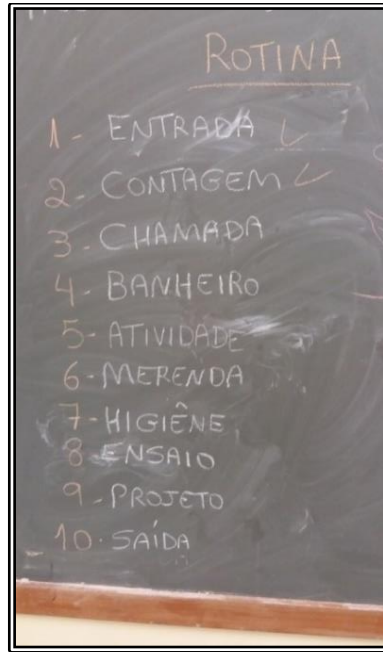 ROTINA
1 - ENTRADA ✓
2 - CONTAGEM ✓
3 - CHAMADA
4 - BANHEIRO
5 - ATIVIDADE
6 - MERENDA
7 - HIGIÊNE
8 - ENSAIO
9 - PROJETO
10 - SAÍDA